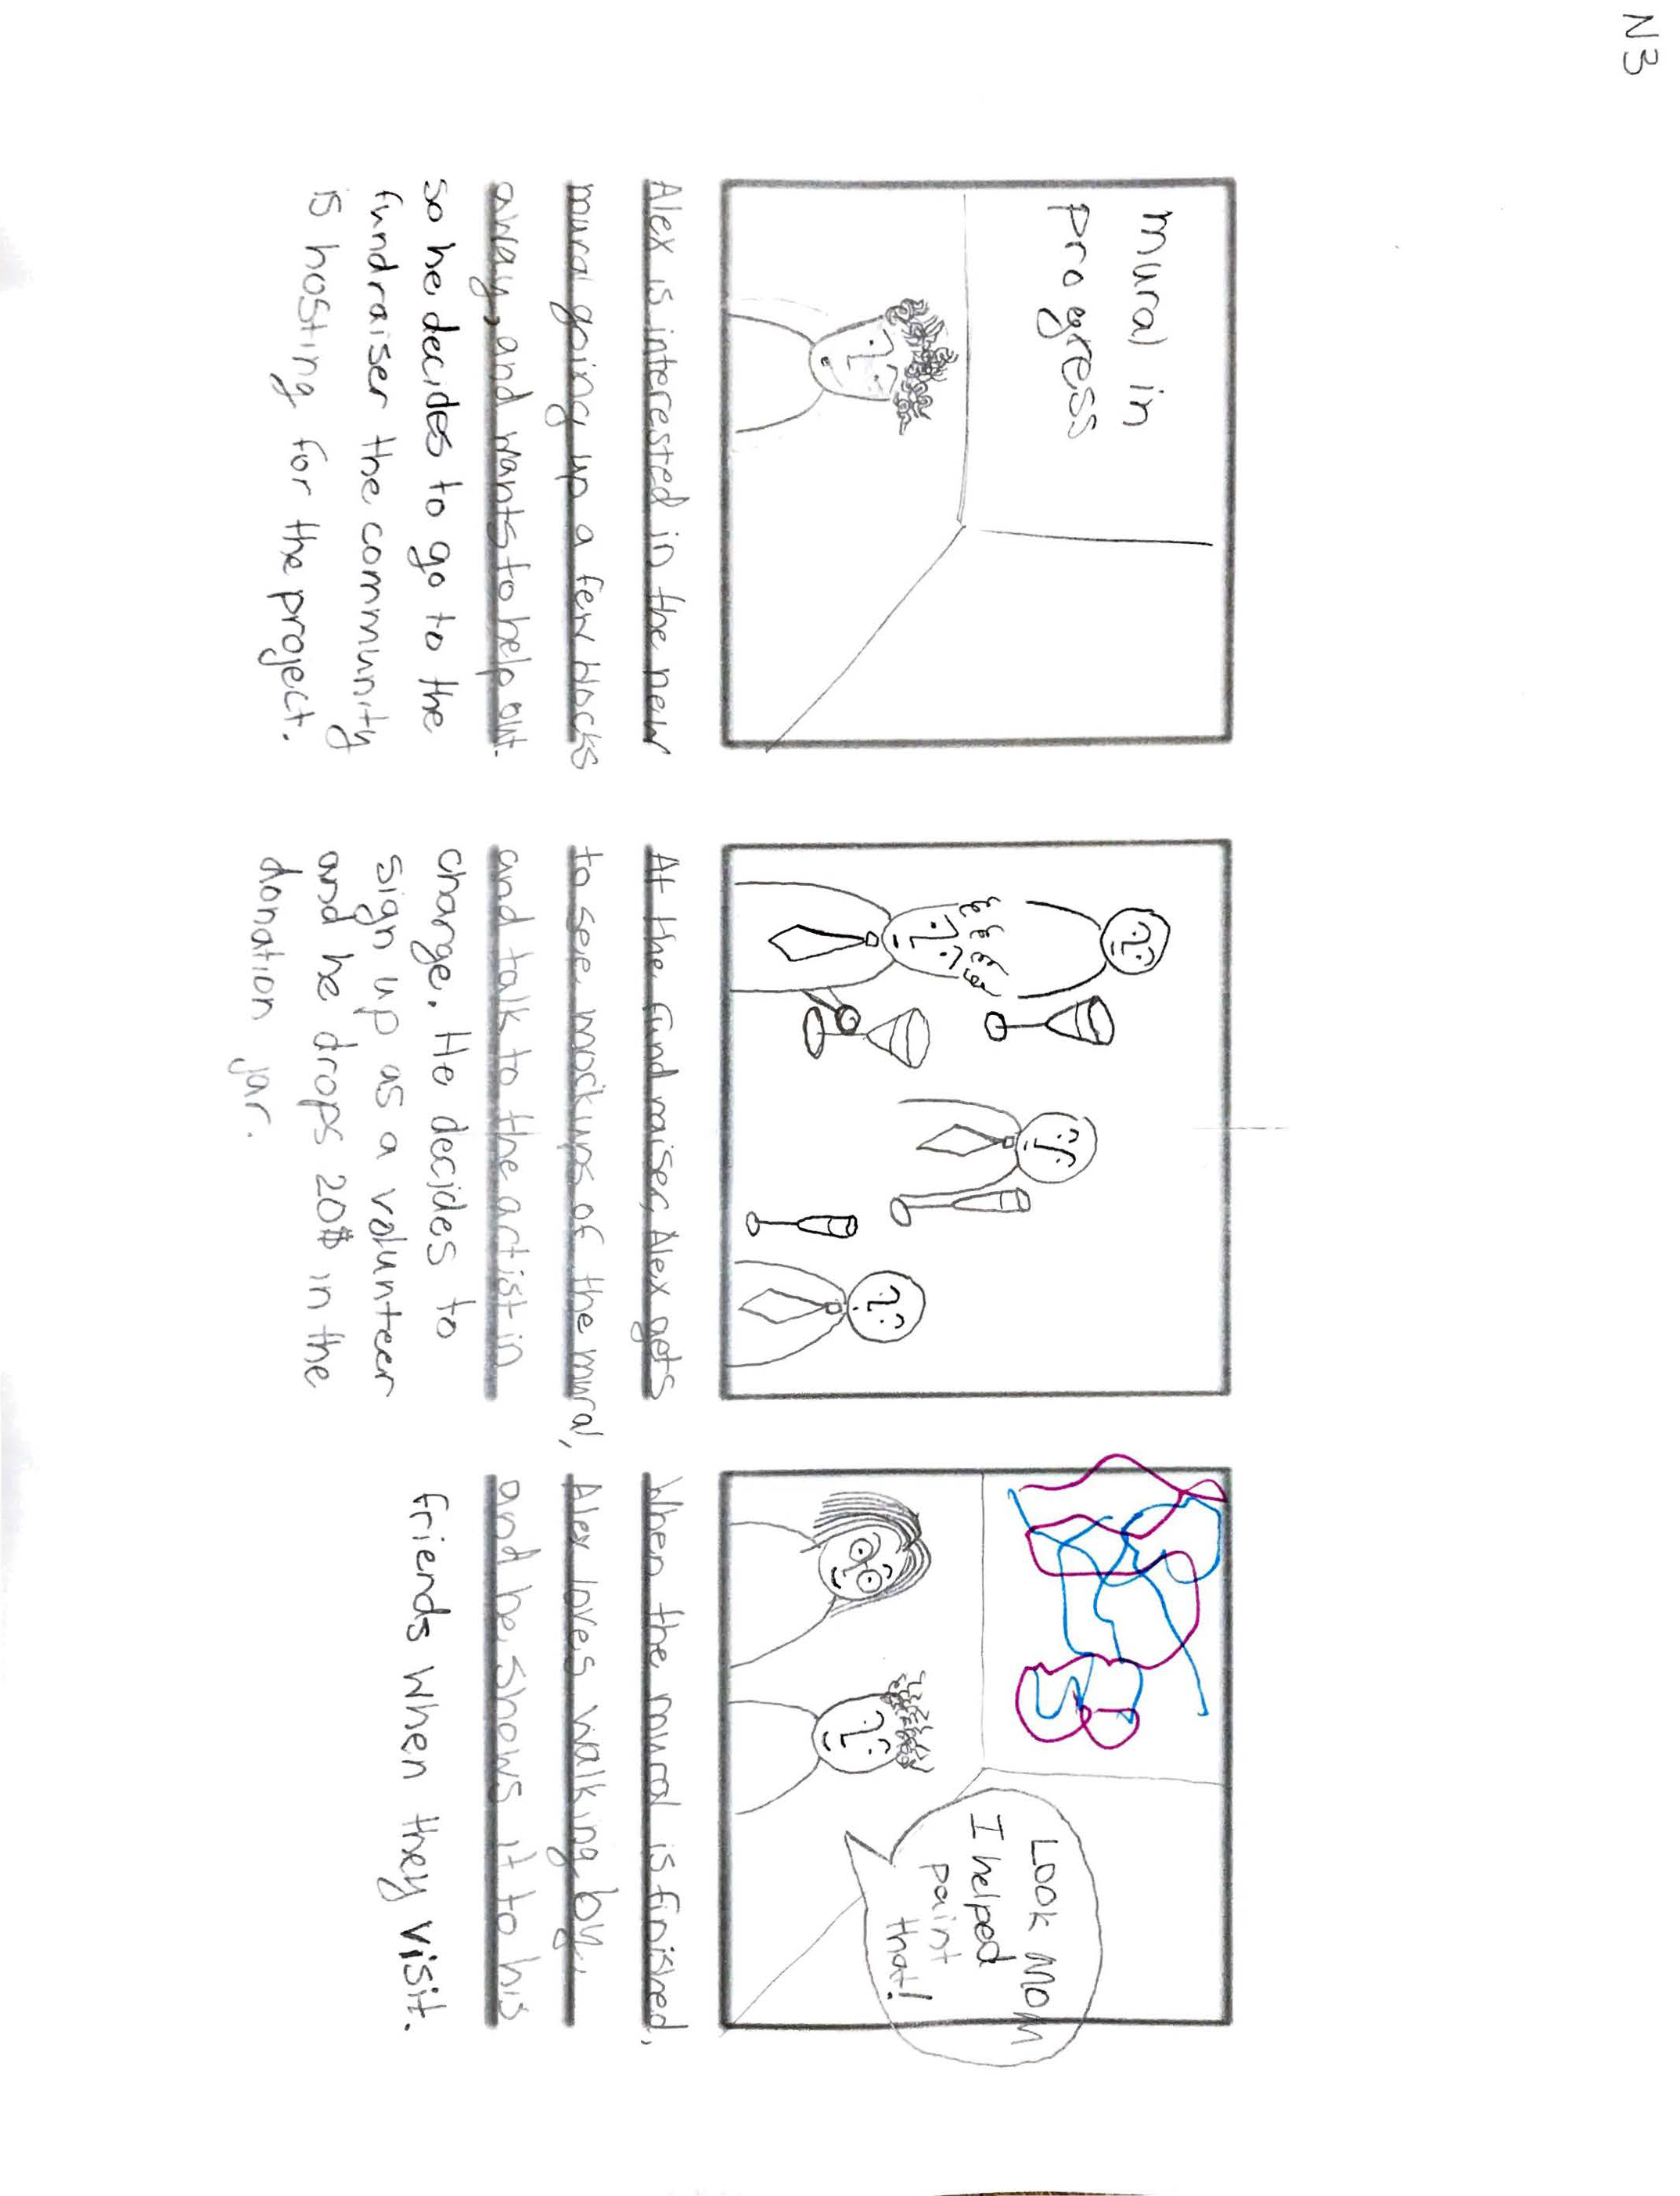 N3
mural in
progress
Alex is interested in the new
mural going up a few blocks
away, and wants to help out.
so he decides to go to the
fundraiser the community
is hosting for the project.
At the fundraiser, Alex gets
to see mockups of the mural,
and talk to the artist in
charge. He decides to
sign up as a volunteer
and he drops 20$ in the
donation jar.
Look Mom
I helped
paint
that!
When the mural is finished,
Alex loves walking by,
and he shows it to his
friends when they visit.